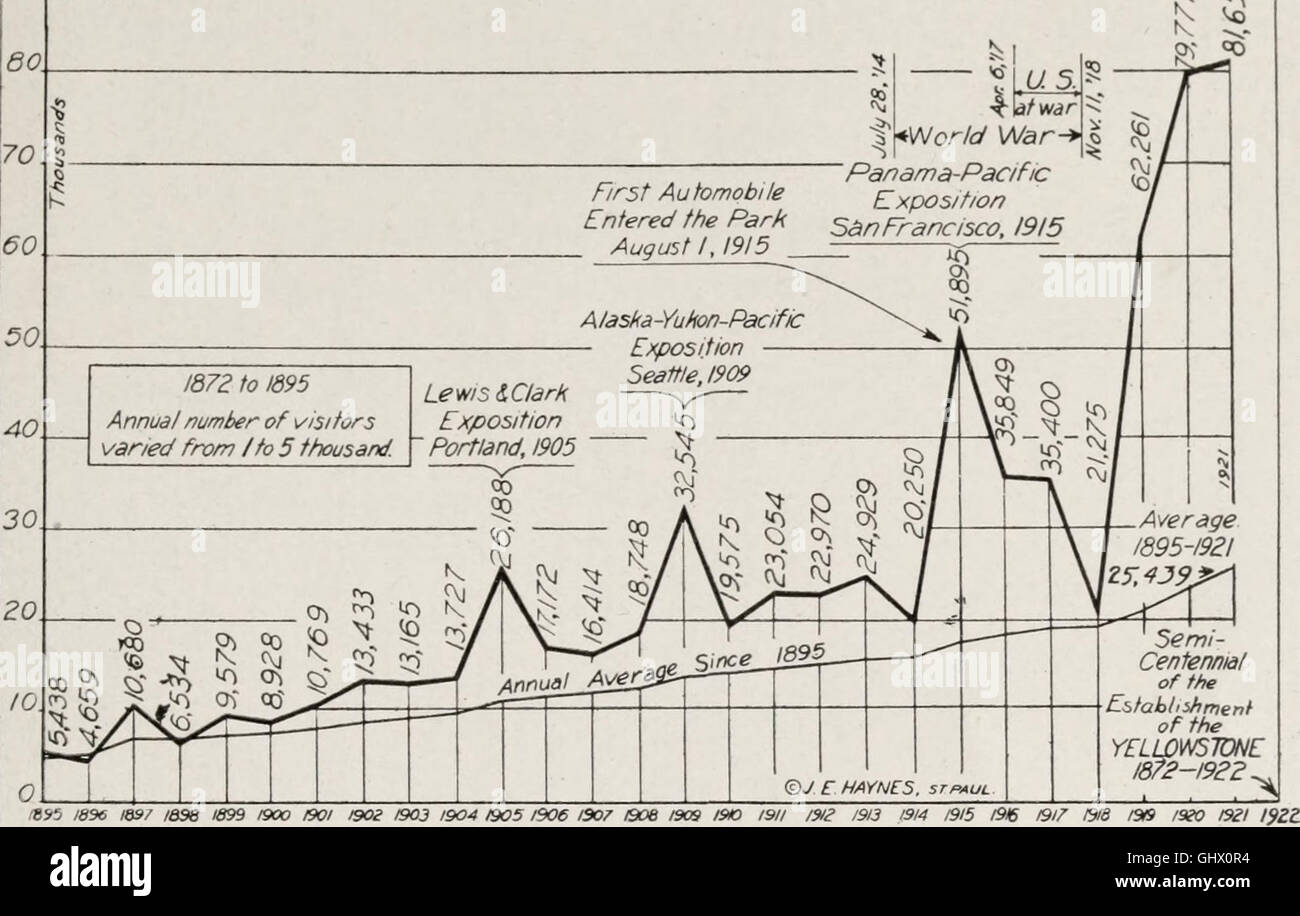 80
70
60
50
40
30
20
10
0
Thousands
July 28, '14
Apr. 6, '17
U. S.
at war
Nov. 11, '18
World War
Panama-Pacific
Exposition
San Francisco, 1915
First Automobile
Entered the Park
August 1, 1915
Alaska-Yukon-Pacific
Exposition
Seattle, 1909
Lewis & Clark
Exposition
Portland, 1905
1872 to 1895
Annual number of visitors
varied from 1 to 5 thousand.
5,438
4,659
10,680
6,534
9,579
8,928
10,769
13,433
13,165
13,727
26,188
17,172
16,414
18,748
32,545
19,575
23,054
22,970
24,929
20,250
51,895
35,849
35,400
21,275
62,261
1921
Average
1895-1921
25,439
Annual Average Since 1895
Semi-
Centennial
of the
Establishment
of the
YELLOWSTONE
1872-1922
© J. E. HAYNES, ST PAUL.
1895 1896 1897 1898 1899 1900 1901 1902 1903 1904 1905 1906 1907 1908 1909 1910 1911 1912 1913 1914 1915 1916 1917 1918 1919 1920 1921 1922
alamy
alamy
Image ID: GHX0R4
www.alamy.com